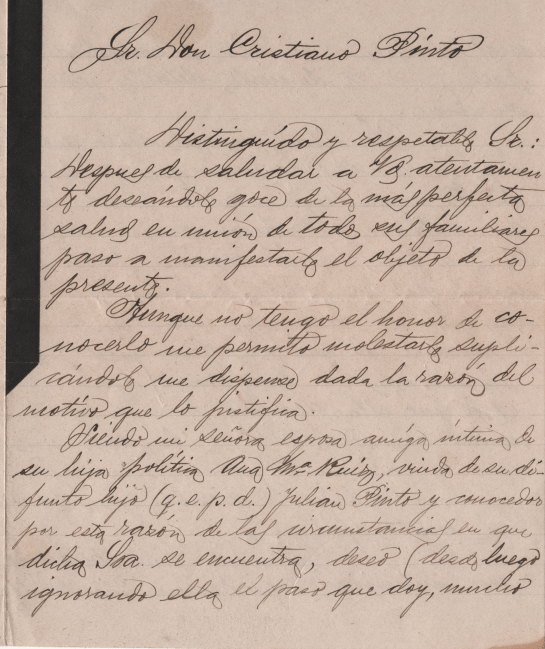 Sr. Don Cristiano Pinto
Distinguido y respetable Sr.:
Despues de saludar a Vd. atentamen
te deseándole goce de la más perfecta
salud en unión de todos sus familiares
paso a manifestarle el objeto de la
presente.
Aunque no tengo el honor de co-
nocerlo me permito molestarle supli-
cándole me dispense dada la razón del
motivo que lo justifica.
Siendo mi señora esposa amiga íntima de
su hija política Ana Mª Ruiz, viuda de su di-
funto hijo (q.e.p.d.) Julian Pinto y conocedor
por esta razón de las circunstancias en que
dicha Sra. se encuentra, deseo (desde luego
ignorando ella el paso que doy, mucho